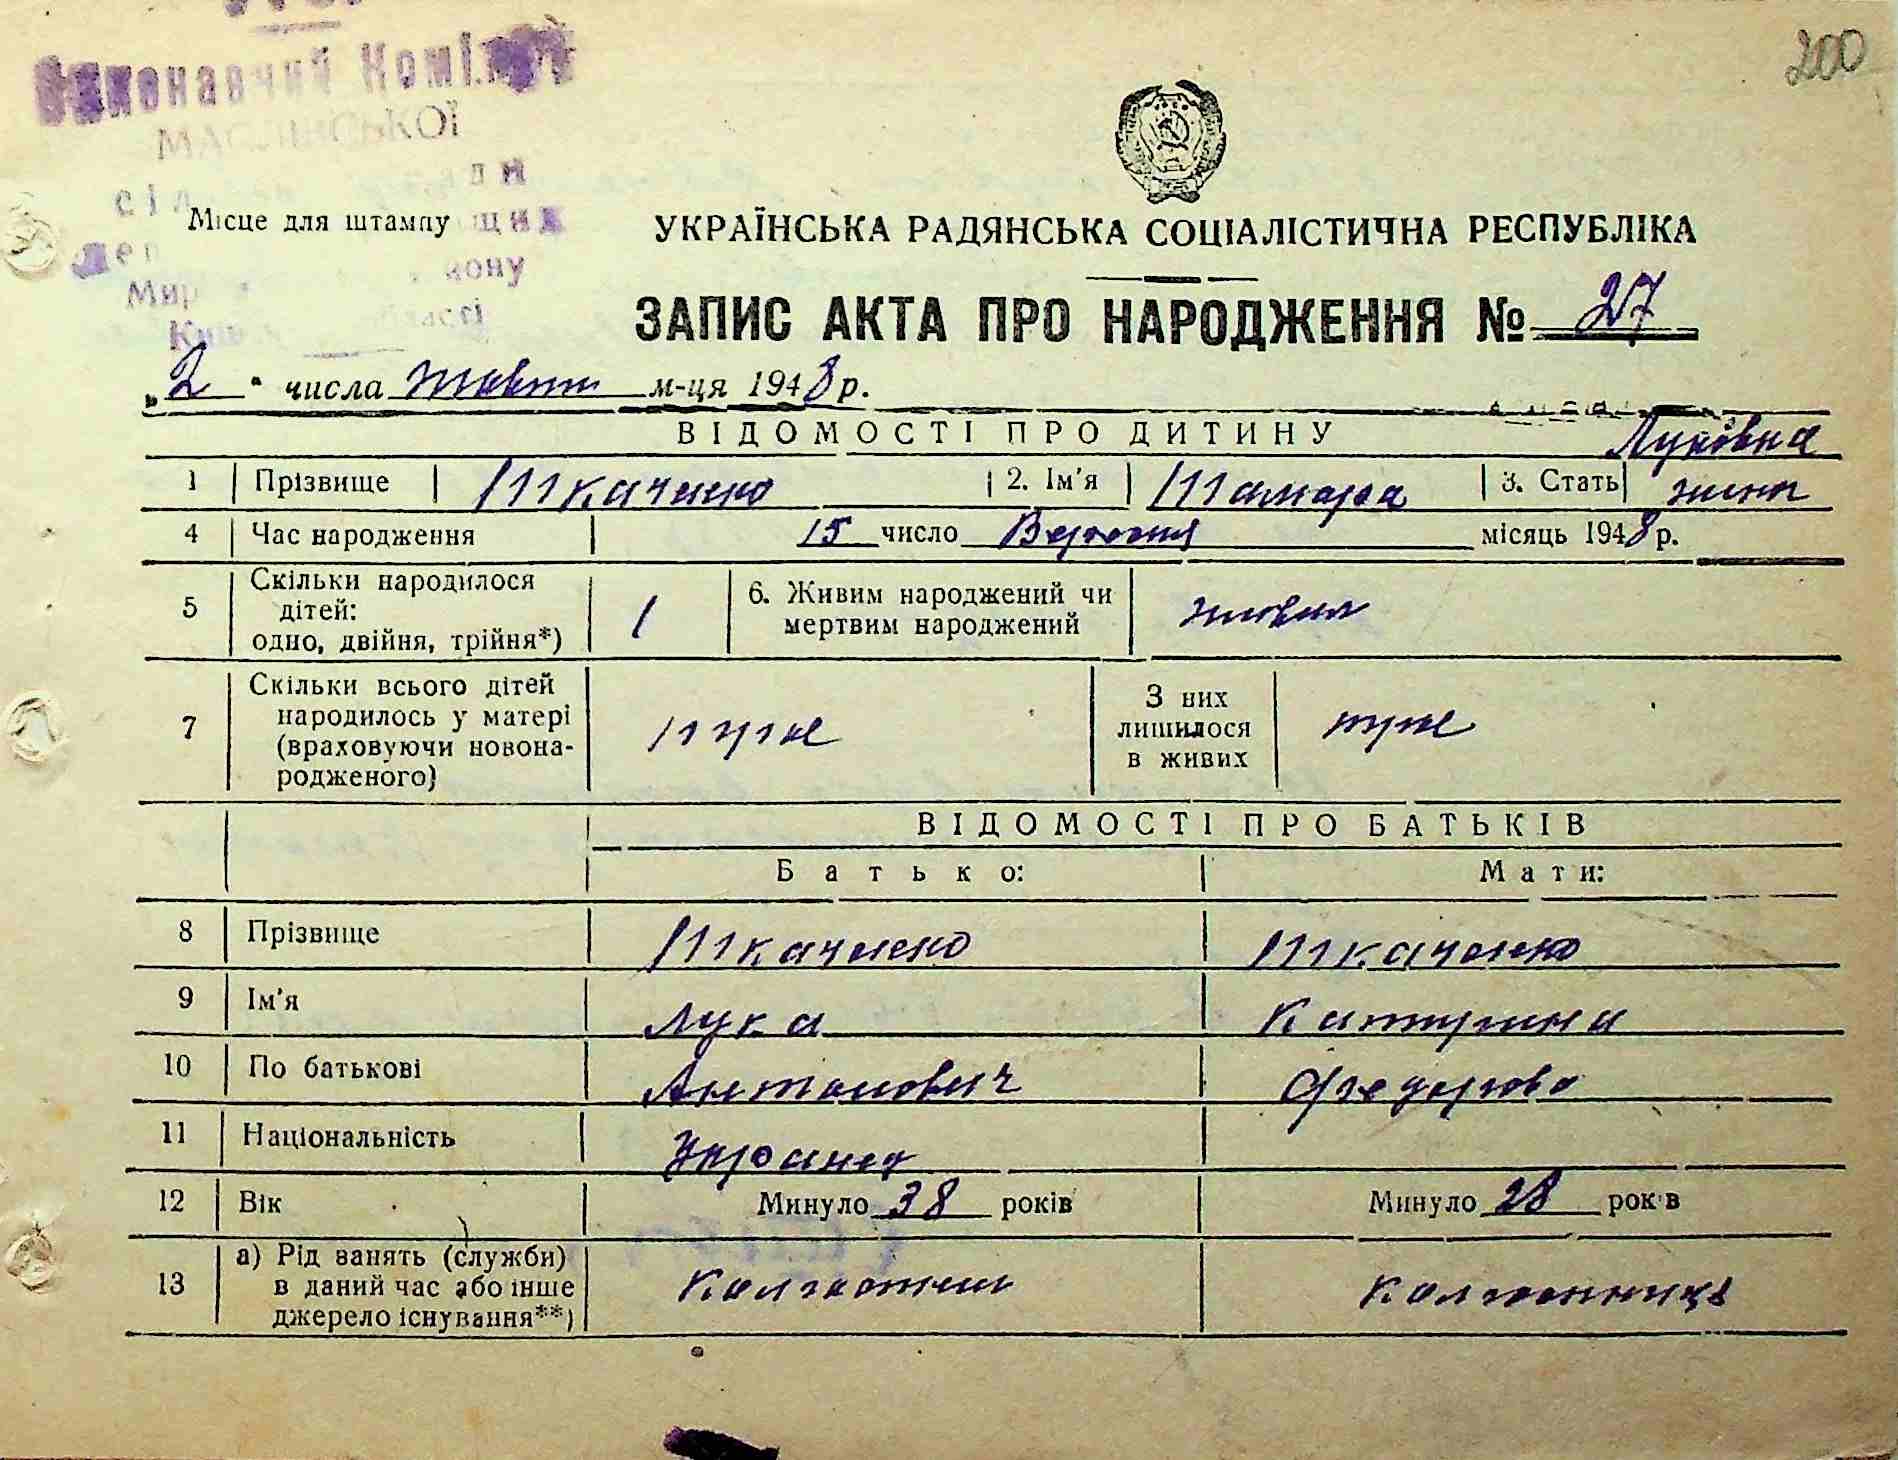 200
Виконавчий Комітет
МАСЛІВСЬКОЇ
Місце для штампу
УКРАЇНСЬКА РАДЯНСЬКА СОЦІАЛІСТИЧНА РЕСПУБЛІКА
ЗАПИС АКТА ПРО НАРОДЖЕННЯ № 27
„2" числа жовтн м-ця 1948 р.
ВІДОМОСТІ ПРО ДИТИНУ
Луківна
1 Прізвище Ткаченко 2. Ім'я Тамара 3. Стать жіноч
4 Час народження 15 число Вересня місяць 1948 р.
5 Скільки народилося дітей: одно, двійня, трійня*) 1 6. Живим народжений чи мертвим народжений живим
7 Скільки всього дітей народилось у матері (враховуючи новонародженого) троє З них лишилося в живих троє
ВІДОМОСТІ ПРО БАТЬКІВ
Батько: Мати:
8 Прізвище Ткаченко Ткаченко
9 Ім'я Лука Катерина
10 По батькові Антонович Федорівна
11 Національність Україн
12 Вік Минуло 38 років Минуло 28 років
13 а) Рід занять (служби) в даний час або інше джерело існування**) Колгоспник Колгоспниця